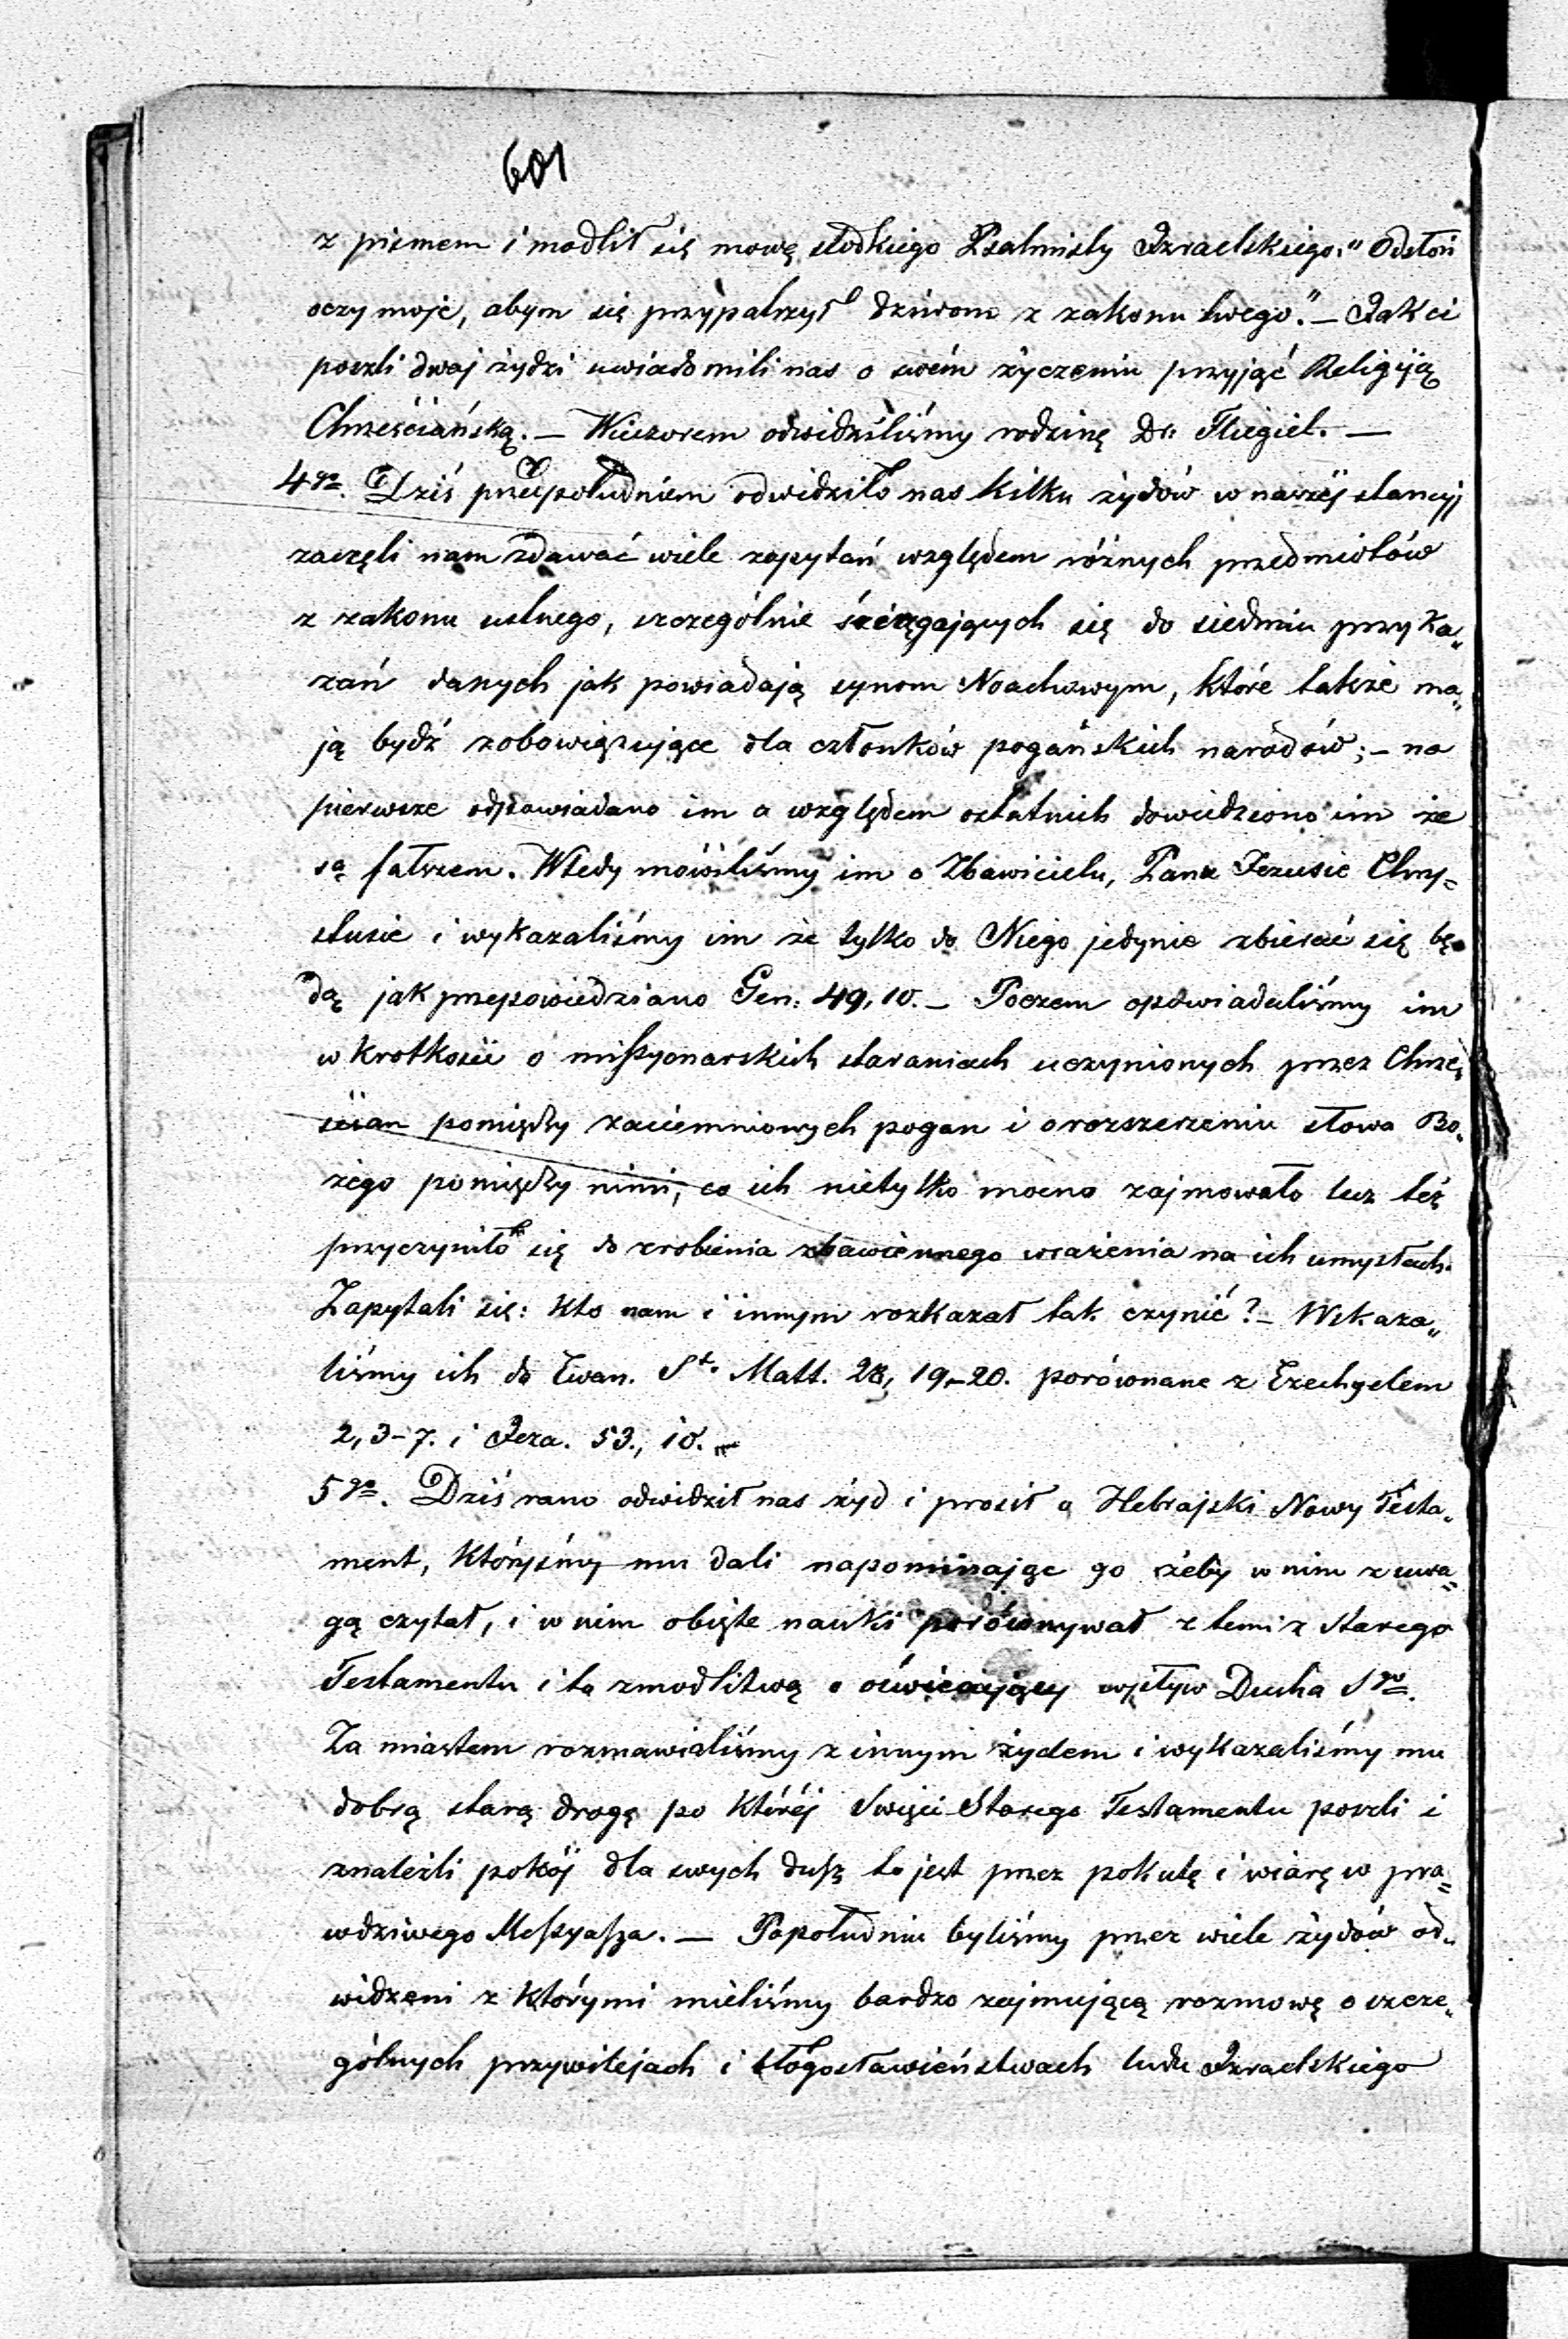 601
z pismem i modlił się mową słodkiego Psalmisty Izraelskiego: "Odsłoń
oczy moje, abym się przypatrzył dziwom z zakonu twego." – Jak ci
poszli dwaj żydzi uwiadomili nas o swém życzeniu przyjąć Religiją
Chrześciańską. – Wieczorem odwidziliśmy rodzinę Dr. Fliegiel. –
4go. Dziś przedpołudniem odwidziło nas kilku żydów w naszéj stancyj
zaczęli nam zdawać wiele zapytań względem różnych przedmiotów
z zakonu ustnego, szczególnie ściągających się do siedmiu przyka„
zań danych jak powiadają synom Noachowym, któré także ma„
ją bydź zobowięzujące dla członków pogańskich narodów; – na
pierwsze odpowiadano im a względem ostatnich dowiedziono im że
są fałszem. Wtedy mówiliśmy im o Zbawicielu, Panu Jezusie Chry=
stusie i wykazaliśmy im że tylko do Niego jedynie zbierać się bę„
dą jak przepowiedziano Gen. 49, 10. – Poczem opowiadaliśmy im
w krotkości o missyonarskich staraniach uczynionych przez Chrze„
ścian pomiędzy zaciemnionych pogan i o rozszerzeniu słowa Bo„
żego pomiędzy nimi, co ich nietylko mocno zajmowało lecz też
przyczyniło się do zrobienia zbawiennego wrażenia na ich umysłach.
Zapytali się: kto nam i innym rozkazał tak czynić? – Wskaza„
liśmy ich do Ewan. St. Matt. 28, 19–20. porównane z Ezechyelem
2, 3–7. i Jeza. 53., 10. –
5go. Dziś rano odwidził nas żyd i prosił o Hebrajski Nowy Testa„
ment, któryśmy mu dali napominając go żeby w nim z uwa„
gą czytał, i w nim objęte nauki porównywał z temi z starego
Testamentu i to z modlitwą o oświecający wpływ Ducha Sgo.
Za miastem rozmawialiśmy z innym żydem i wykazaliśmy mu
dobrą starą drogę po któréj Swięci Starego Testamentu poszli i
znaleźli pokój dla swych dusz to jest przez pokutę i wiarę w pra„
wdziwego Messyasza. – Popołudniu byliśmy przez wiele żydów od„
widzeni z którymi mieliśmy bardzo zajmującą rozmowę o szcze„
gólnych przywilejach i błogosławieństwach ludu Izraelskiego